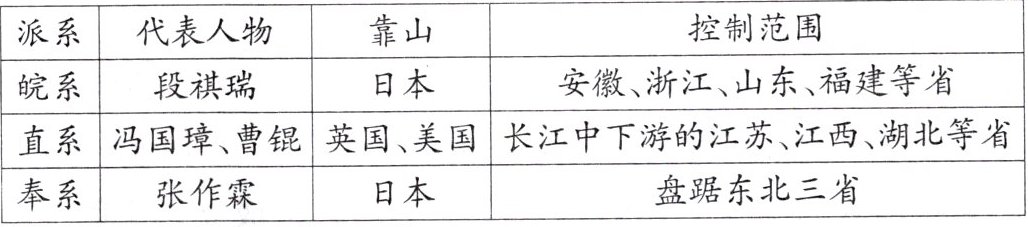 派系 代表人物 靠山 控制范围
皖系 段祺瑞 日本 安徽、浙江、山东、福建等省
直系 冯国璋、曹锟 英国、美国 长江中下游的江苏、江西、湖北等省
奉系 张作霖 日本 盘踞东北三省